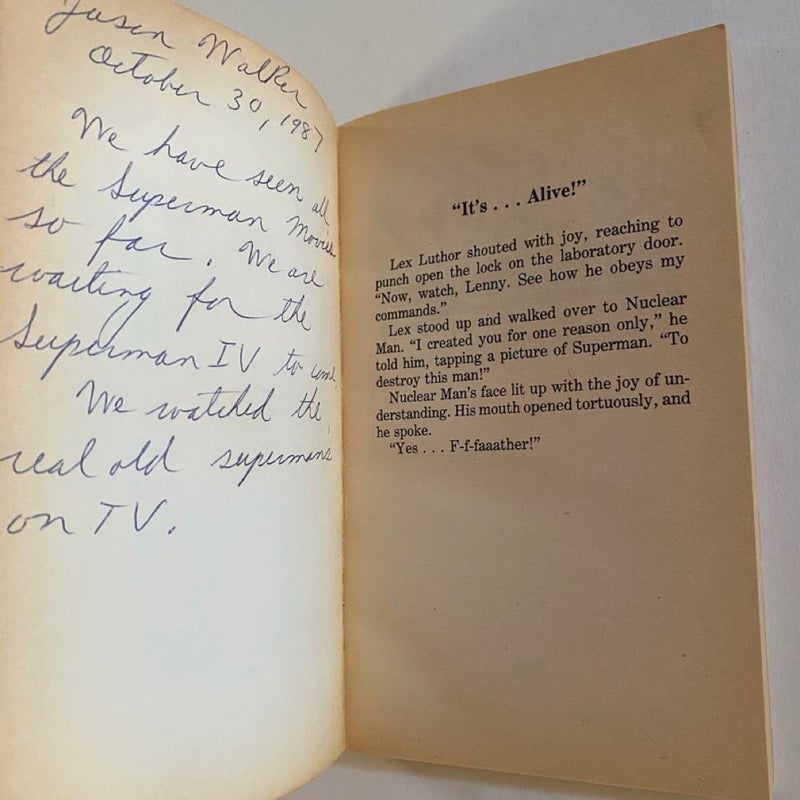 Jason Walker
October 30, 1987
We have seen all
the Superman Movies
so far. We are
waiting for the
Superman IV to come.
We watched the
real old supermans
on TV.
"It's . . . Alive!"
Lex Luthor shouted with joy, reaching to
punch open the lock on the laboratory door.
"Now, watch, Lenny. See how he obeys my
commands."
Lex stood up and walked over to Nuclear
Man. "I created you for one reason only," he
told him, tapping a picture of Superman. "To
destroy this man!"
Nuclear Man's face lit up with the joy of un-
derstanding. His mouth opened tortuously, and
he spoke.
"Yes . . . F-f-faaather!"